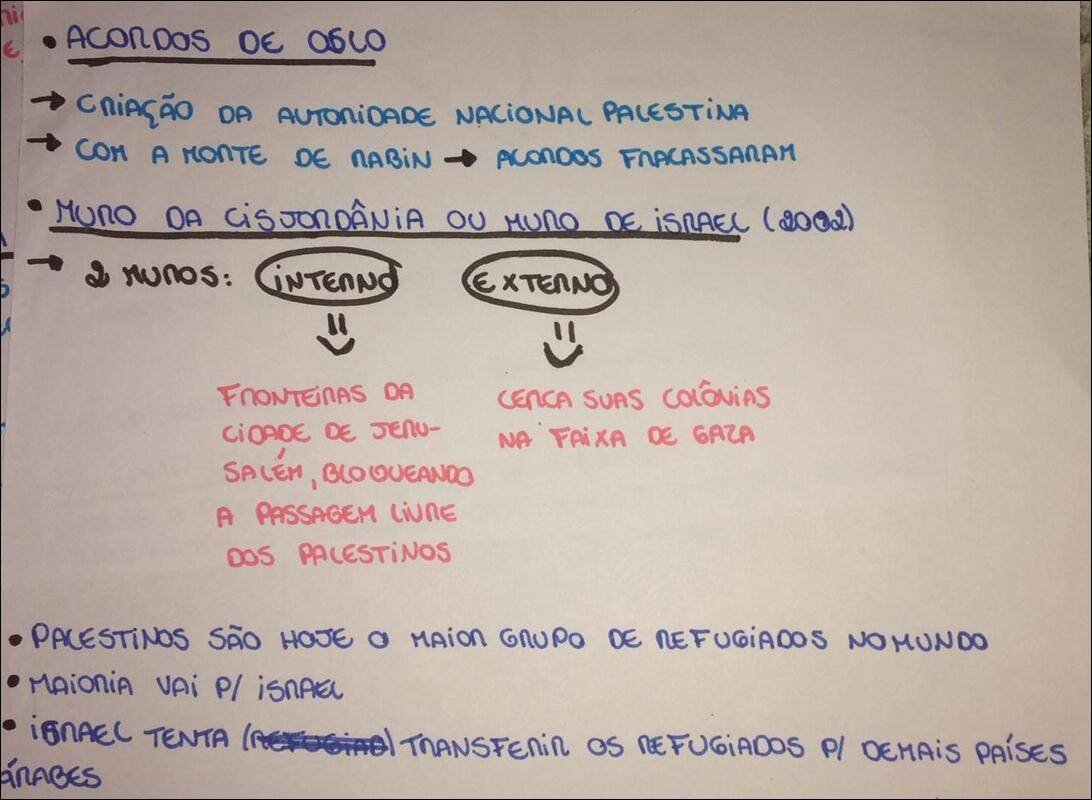 • ACORDOS DE OSLO
→ CRIAÇÃO DA AUTORIDADE NACIONAL PALESTINA
→ COM A MORTE DE RABIN → ACORDOS FRACASSARAM
• MURO DA CISJORDÂNIA OU MURO DE ISRAEL (2002)
→ 2 MUROS: INTERNO EXTERNO
FRONTEIRAS DA
CIDADE DE JERU-
SALÉM, BLOQUEANDO
A PASSAGEM LIVRE
DOS PALESTINOS
CERCA SUAS COLÔNIAS
NA FAIXA DE GAZA
• PALESTINOS SÃO HOJE O MAIOR GRUPO DE REFUGIADOS NO MUNDO
• MAIORIA VAI P/ ISRAEL
• ISRAEL TENTA (REFUGIAD) TRANSFERIR OS REFUGIADOS P/ DEMAIS PAÍSES
ÁRABES